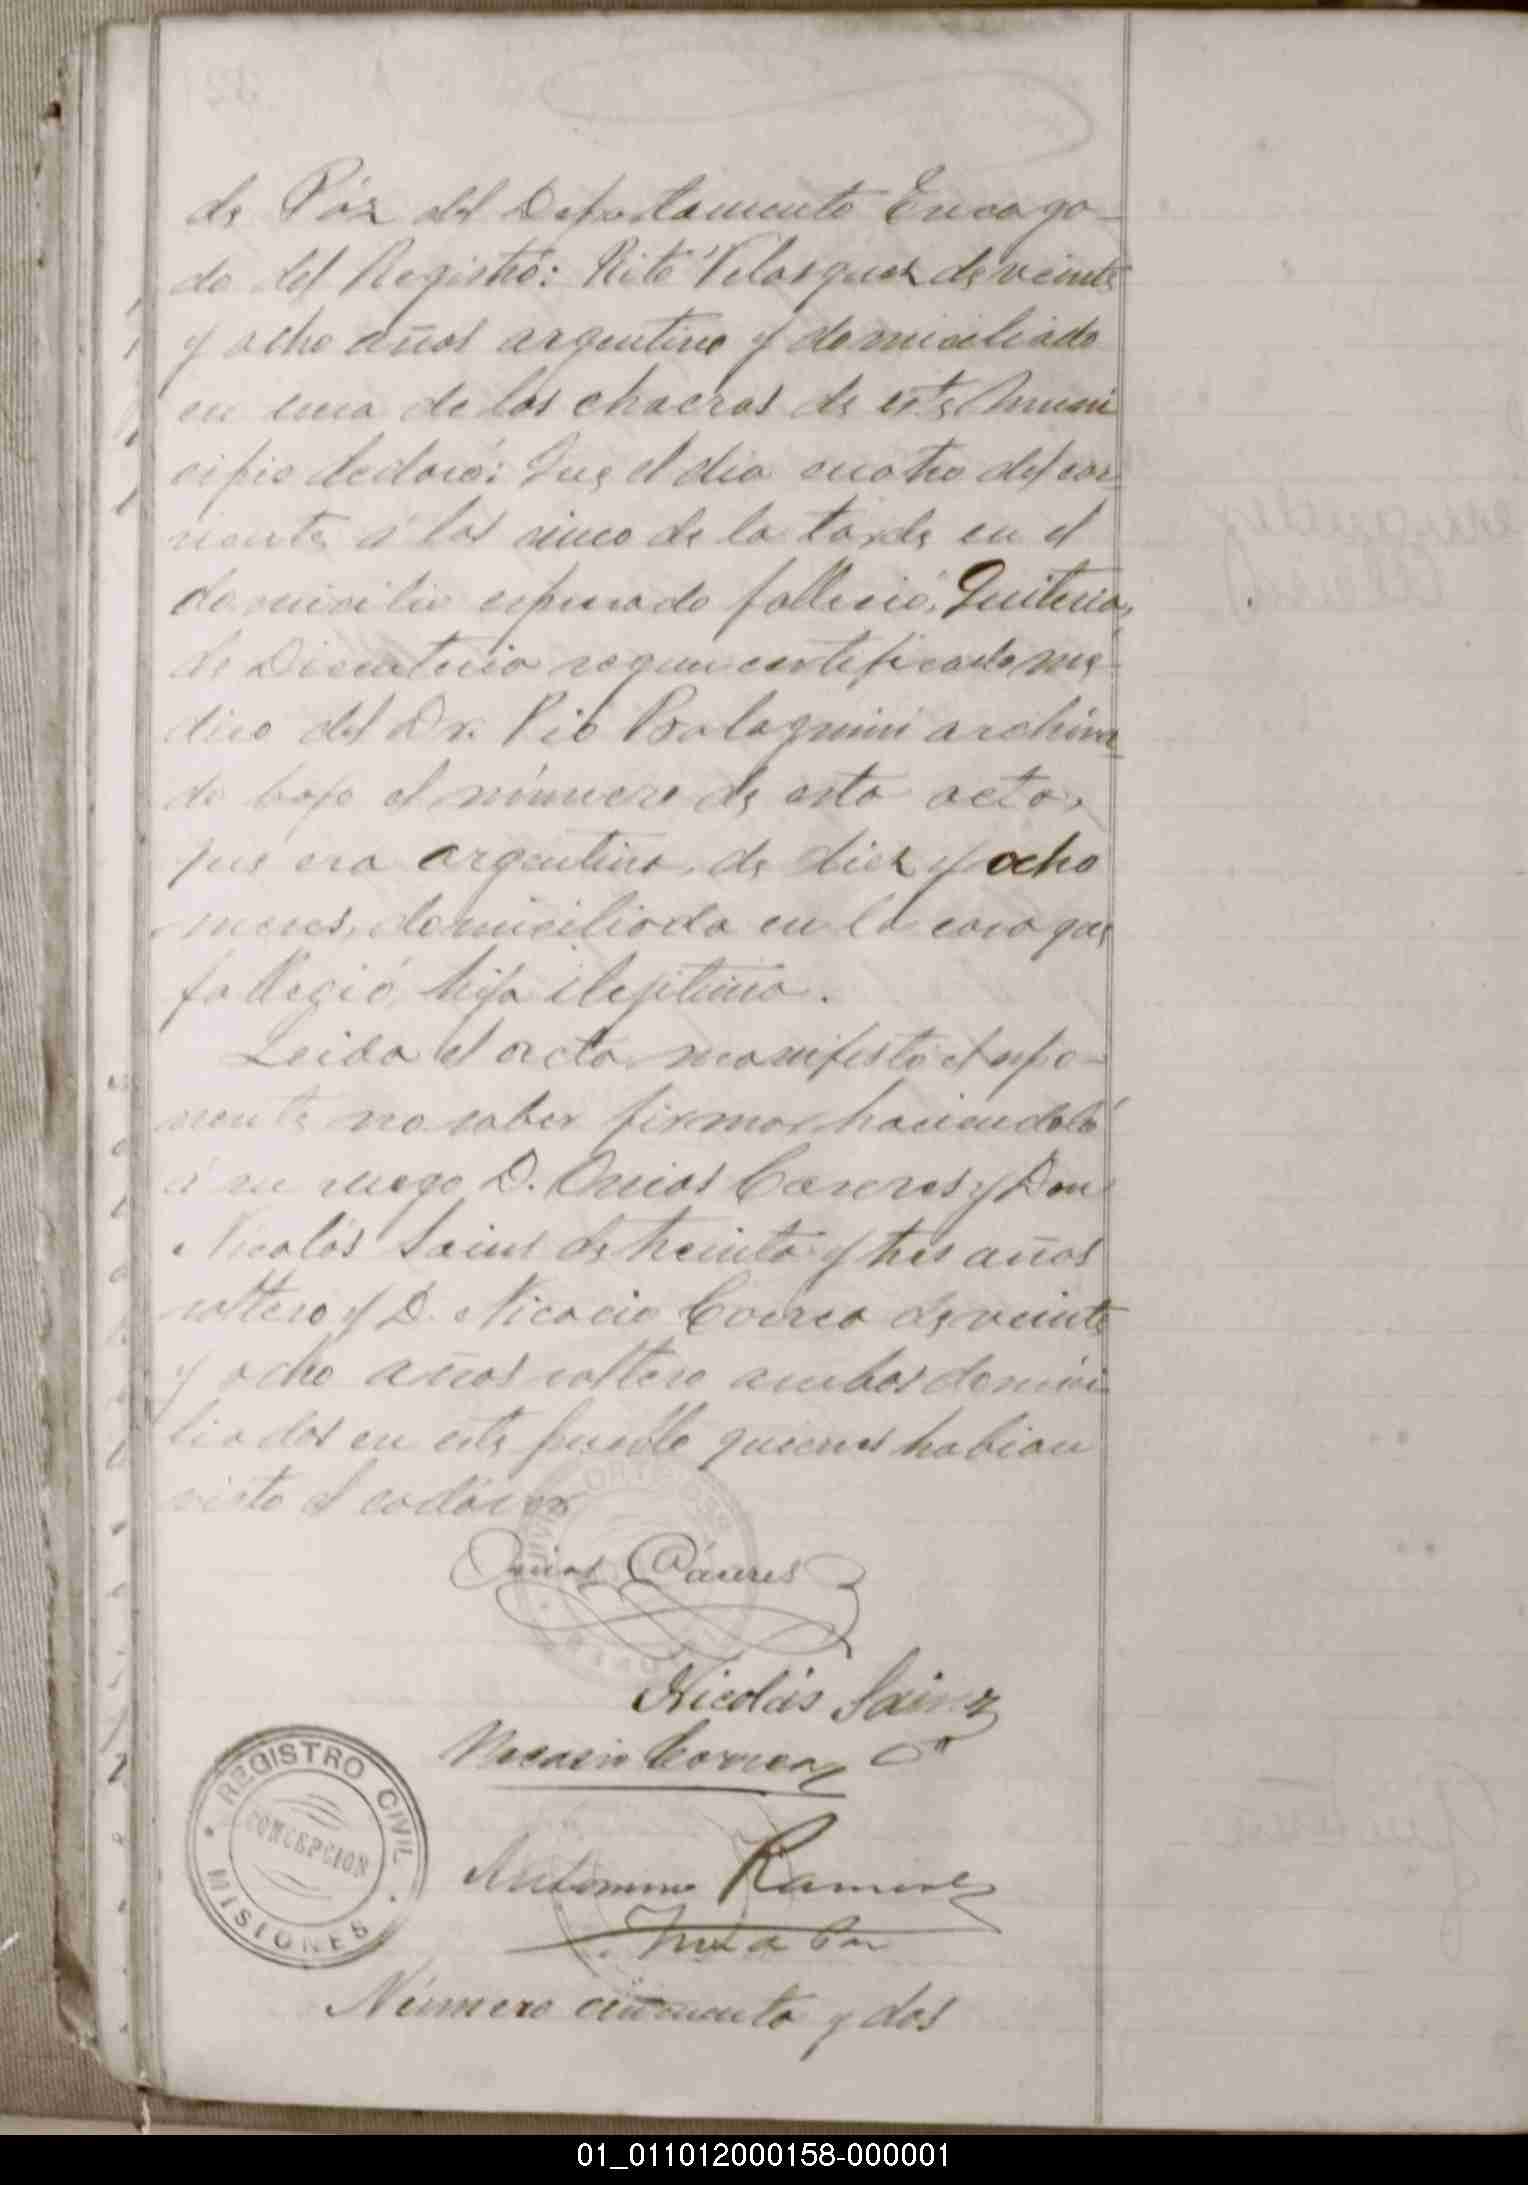 de Páz del Departamento Encarga-
do del Registro: Rito Velasquez de veinte
y ocho años argentino y domiciliado
en una de las chacras de este Muni
cipio declaró: Que el dia cuatro del cor
riente á las cinco de la tarde en el
domicilio espresado falleció Quiteria,
de Disenteria segun certificado mé-
dico del Dr. Pio Balagnini archiva-
do bajo el número de esta acta,
que era argentina, de diez y ocho
meses, domiciliada en la casa que
falleció, hija ilegitima.
Leida el acta manifestó el espo-
nente no saber firmar haciendoló
á su ruego D. Onias Caceres y Don
Nicolás Sainz de treinta y tres años
soltero y D. Nicacio Correa de veinte
y ocho años soltero ambos domici
liados en este pueblo quienes habian
visto el cadáver
Onias Cáceres
Nicolás Sainz
Nicasio Correa
Antonino Ramirez
Juez de Paz
REGISTRO CIVIL
CONCEPCION
MISIONES
Número cincuenta y dos
01_011012000158-000001